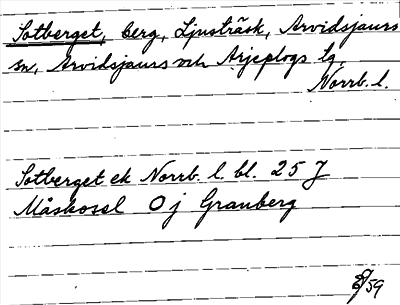 Sotberget, berg, Ljusträsk, Arvidsjaurs
sn, Arvidsjaurs och Arjeplogs lg,
Norrb. l.
Sotberget ek Norrb. l. bl. 25 J
Måskossl O j Granberg
59